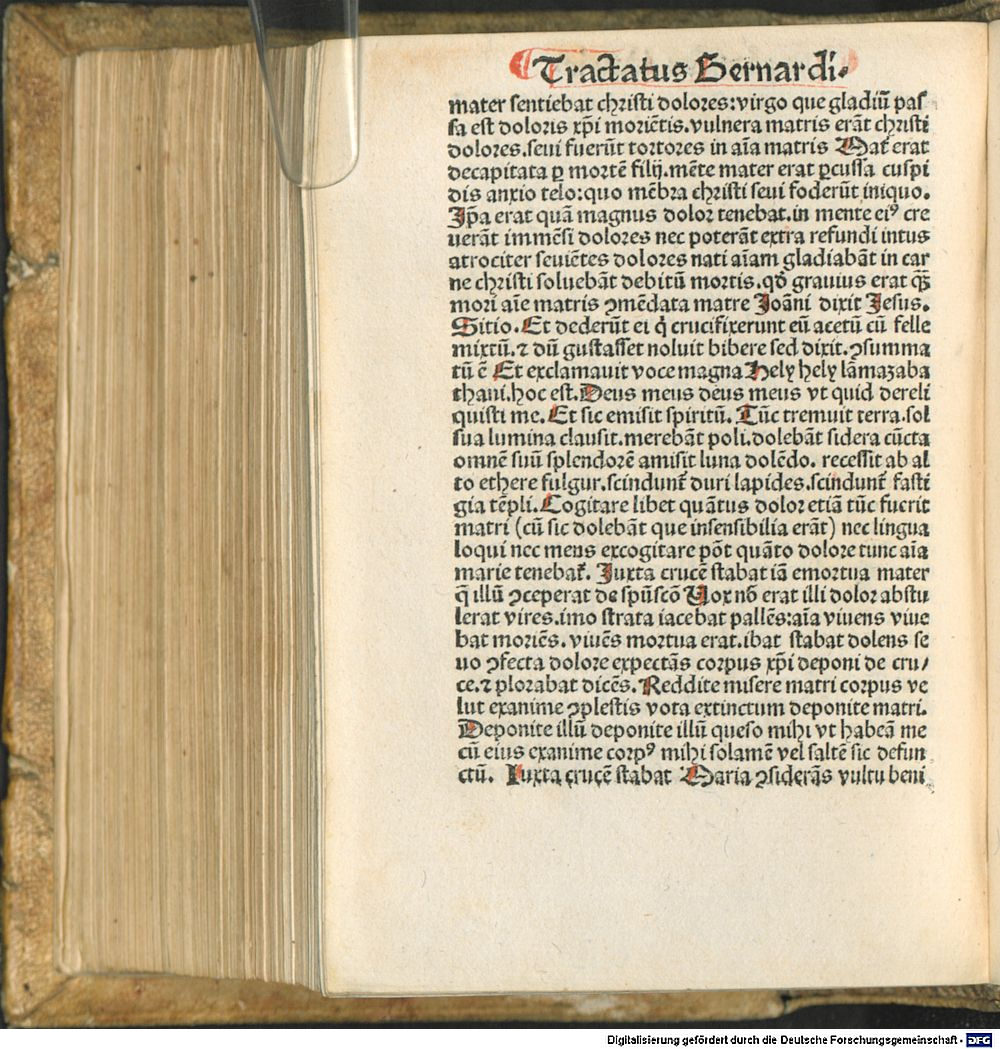 Tractatus Bernardi.
mater sentiebat christi dolores: virgo que gladiū pas
sa est doloris xp̄i moriētis. vulnera matris erāt christi
dolores. seui fuerūt tortores in aīa matris Mat᷑ erat
decapitata ꝑ mortē filij. mēte mater erat ꝑcussa cuspi
dis anxio telo: quo mēbra christi seui foderūt iniquo.
Ip̄a erat quā magnus dolor tenebat. in mente eiꝰ cre
uerāt immēsi dolores nec poterāt extra refundi intus
atrociter seuiētes dolores nati aīam gladiabāt in car
ne christi soluebāt debitū mortis. qd̓ grauius erat qᷓꝫ
mori aīe matris ꝯmēdata matre Joāni dixit Jesus.
Sitio. Et dederūt ei q̇ crucifixerunt eū acetū cū felle
mixtū. ⁊ dū gustasset noluit bibere sed dixit. ꝯsumma
tū ē Et exclamauit voce magna Hely hely lāmazaba
thani. hoc est. Deus meus deus meus vt quid dereli
quisti me. Et sic emisit spiritū. Tūc tremuit terra. sol
sua lumina clausit. merebāt poli. dolebāt sidera cūcta
omnē suū splendorē amisit luna dolēdo. recessit ab al
to ethere fulgur. scindunt᷑ duri lapides. scindunt᷑ fasti
gia tēpli. Cogitare libet quātus dolor etiā tūc fuerit
matri (cū sic dolebāt que insensibilia erāt) nec lingua
loqui nec mens excogitare pōt quāto dolore tunc aīa
marie tenebat᷑. Juxta crucē stabat iā emortua mater
q̄ illū ꝯceperat de sp̄uscō Uox nō erat illi dolor abstu
lerat vires. imo strata iacebat pallēs: aīa viuens viue
bat moriēs. viuēs mortua erat. ibat stabat dolens se
uo ꝯfecta dolore expectās corpus xp̄i deponi de cru/
ce. ⁊ plorabat dicēs. Reddite misere matri corpus ve
lut exanime ꝯplestis vota extinctum deponite matri.
Deponite illū deponite illū queso mihi vt habeā me
cū eius exanime corpꝰ mihi solamē vel saltē sic defun
ctū. Iuxta crucē stabat Maria ꝯsiderās vultu beni
Digitalisierung gefördert durch die Deutsche Forschungsgemeinschaft - DFG